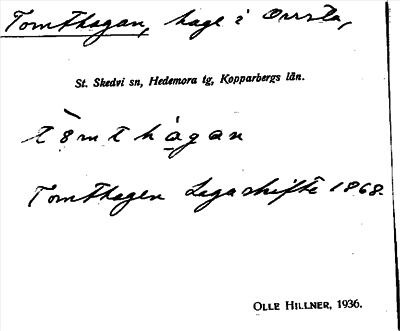 Tomthagan, hage i Orrsta,
St. Skedvi sn, Hedemora tg, Kopparbergs län.
tòmthagan
Tomthagen Lagaskifte 1868.
OLLE HILLNER, 1936.